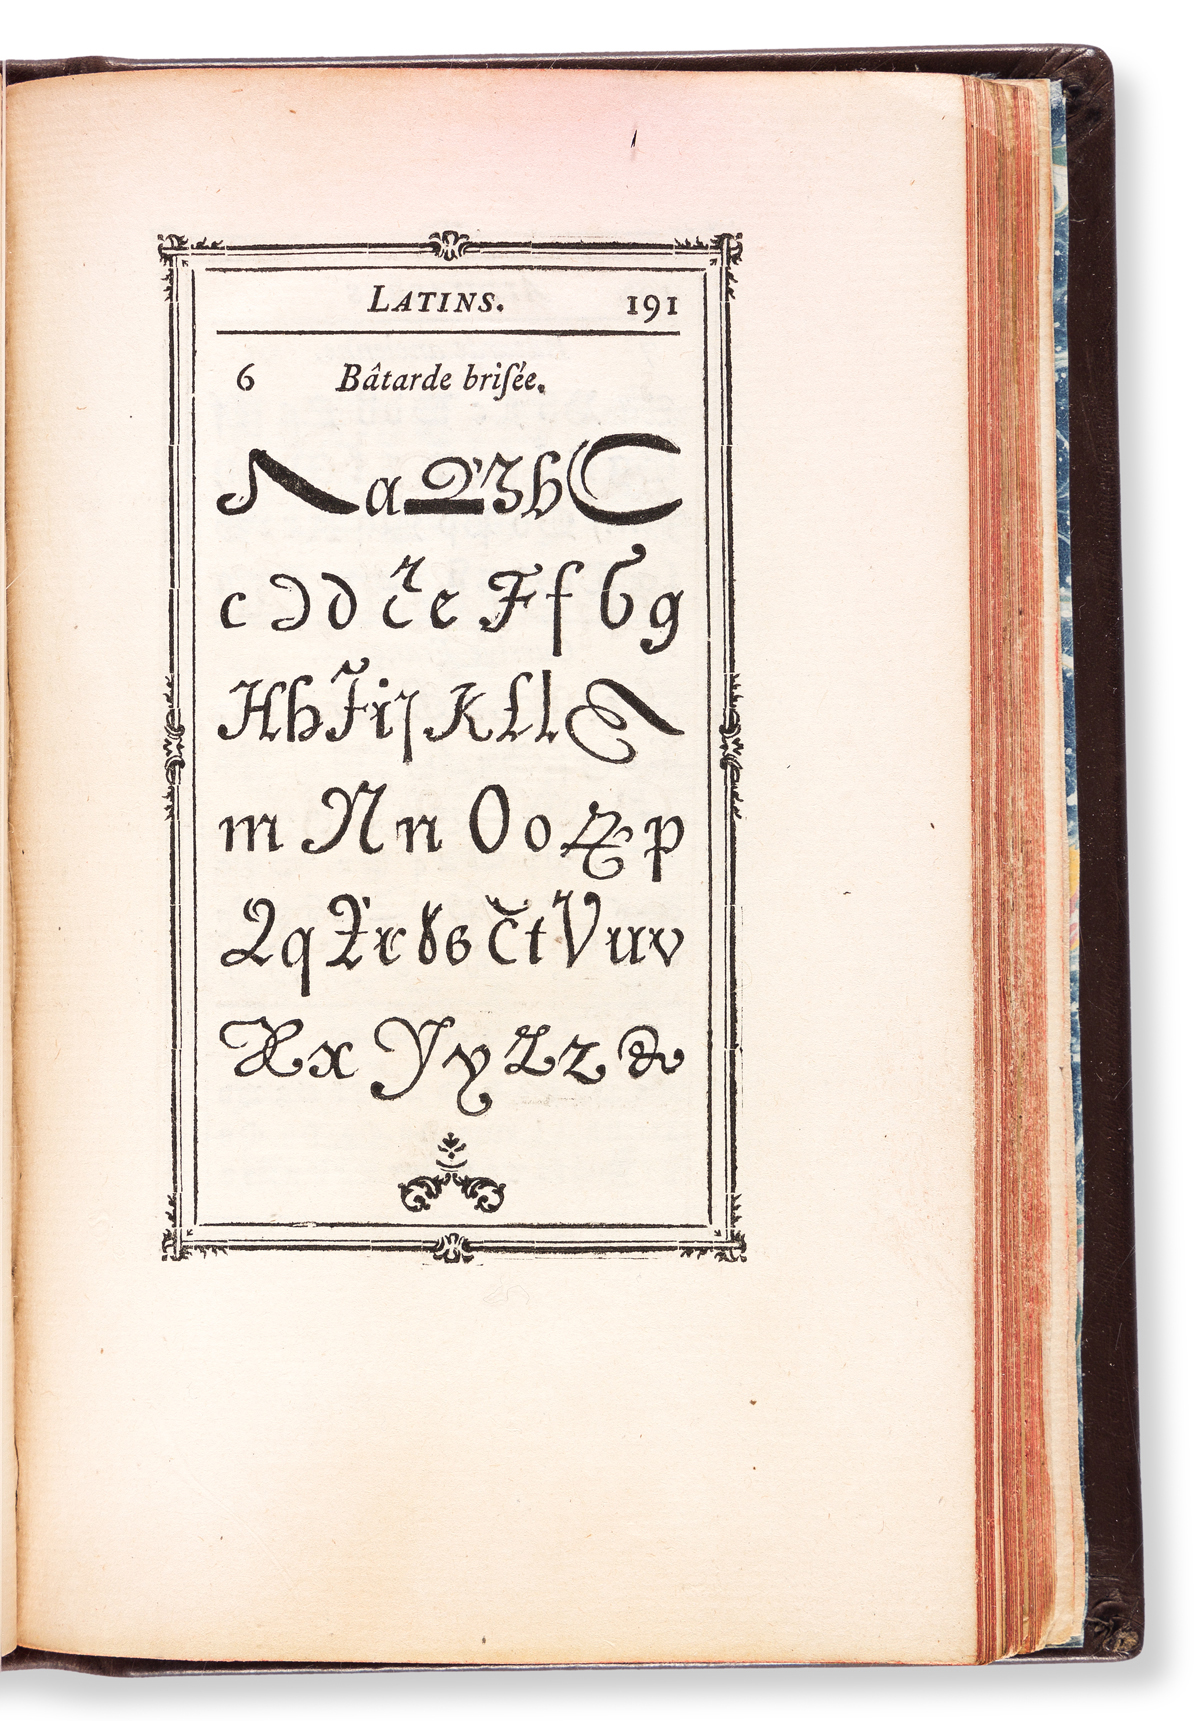 LATINS. 191
6 Bâtarde briſée.
A a B b C
c D d E e F f G g
H h I i j K k L l M
m N n O o P p
Q q R r S s T t V u v
X x Y y Z z &